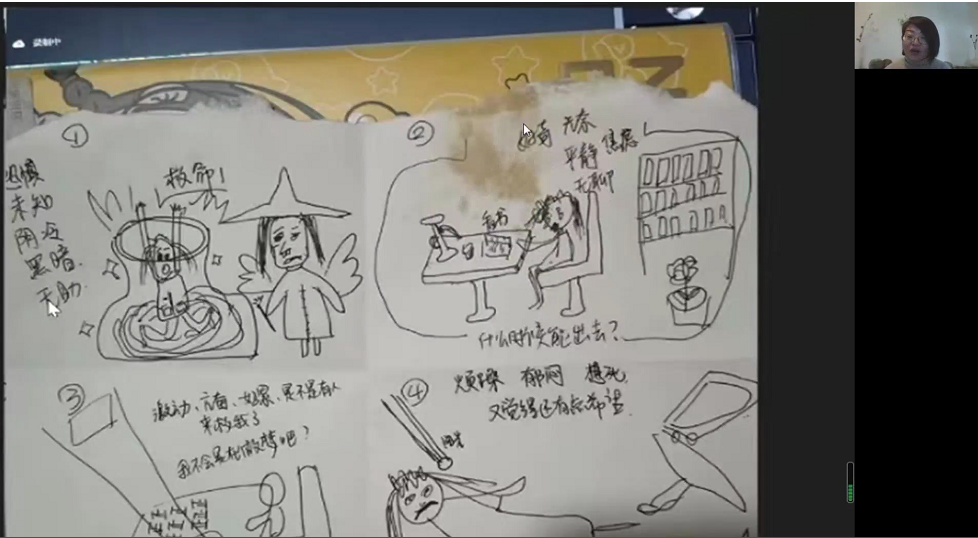 录制中
①
恐惧
未知
阴冷
黑暗.
无助.
救命！
②
无奈
平静 焦虑
无聊
看书
什么时候能出去？
③
激动、
是不是有人
来救我了
我不会是在做梦吧？
④
烦躁 郁闷 想死,
又觉得还有些希望.